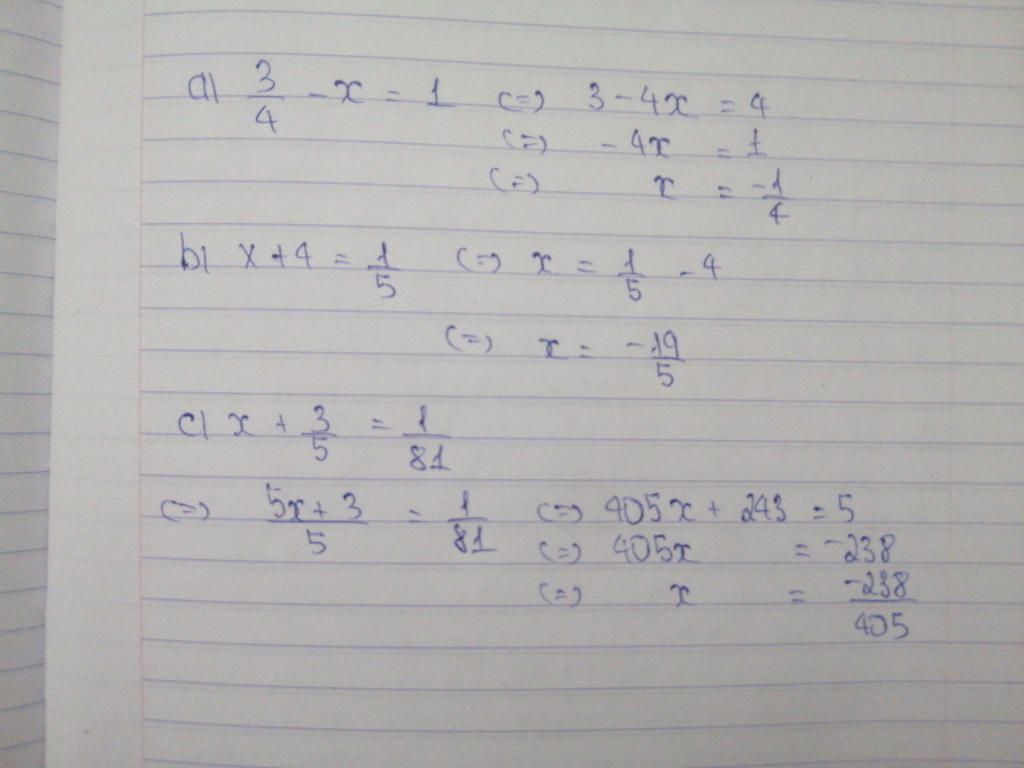 a) 3/4 - x = 1 (=) 3 - 4x = 4
(=) - 4x = 1
(=) x = -1/4
b) x + 4 = 1/5 (=) x = 1/5 - 4
(=) x = -19/5
c) x + 3/5 = 1/81
(=) 5x + 3/5 = 1/81 (=) 405x + 243 = 5
(=) 405x = -238
(=) x = -238/405